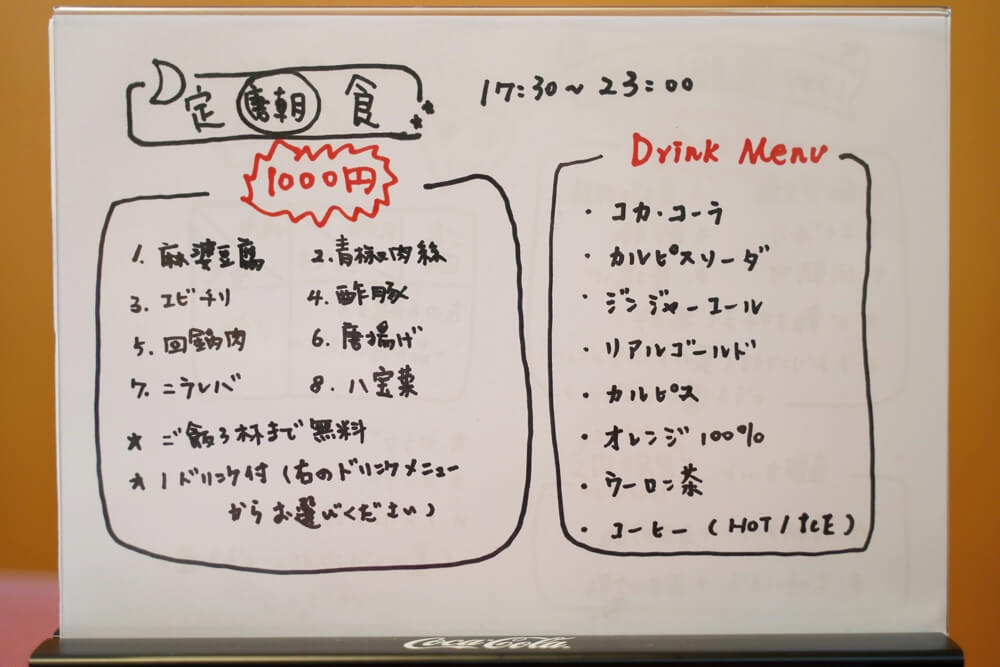 定唐朝食
17:30~23:00
1000円
1. 麻婆豆腐 2. 青椒肉絲
3. エビチリ 4. 酢豚
5. 回鍋肉 6. 唐揚げ
7. ニラレバ 8. 八宝菜
★ ご飯3杯まで無料
★ 1ドリンク付(右のドリンクメニュー
からお選びください)
Drink Menu
・コカ・コーラ
・カルピスソーダ
・ジンジャーエール
・リアルゴールド
・カルピス
・オレンジ100%
・ウーロン茶
・コーヒー(HOT/ICE)
Coca-Cola